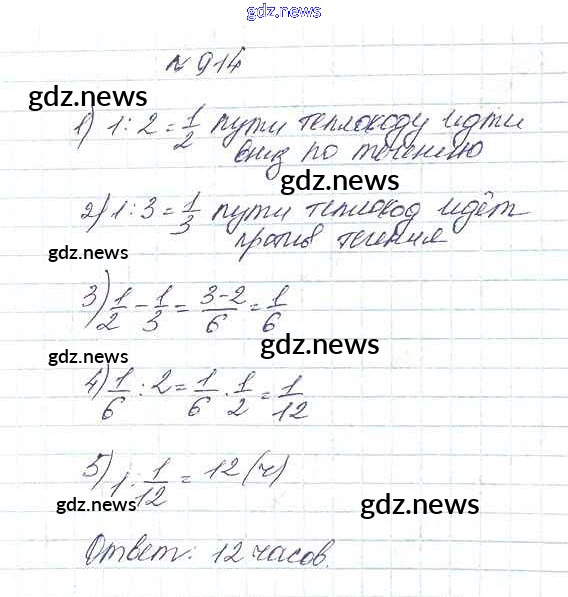 gdz.news
№ 914
gdz.news
1) 1 : 2 = 1/2 пути теплоходу идти
вниз по течению
gdz.news
2) 1 : 3 = 1/3 пути теплоход идёт
против течения
gdz.news
3) 1/2 - 1/3 = 3-2/6 = 1/6
gdz.news
gdz.news
4) 1/6 : 2 = 1/6 · 1/2 = 1/12
5) 1 : 1/12 = 12 (ч)
gdz.news
gdz.news
Ответ: 12 часов.